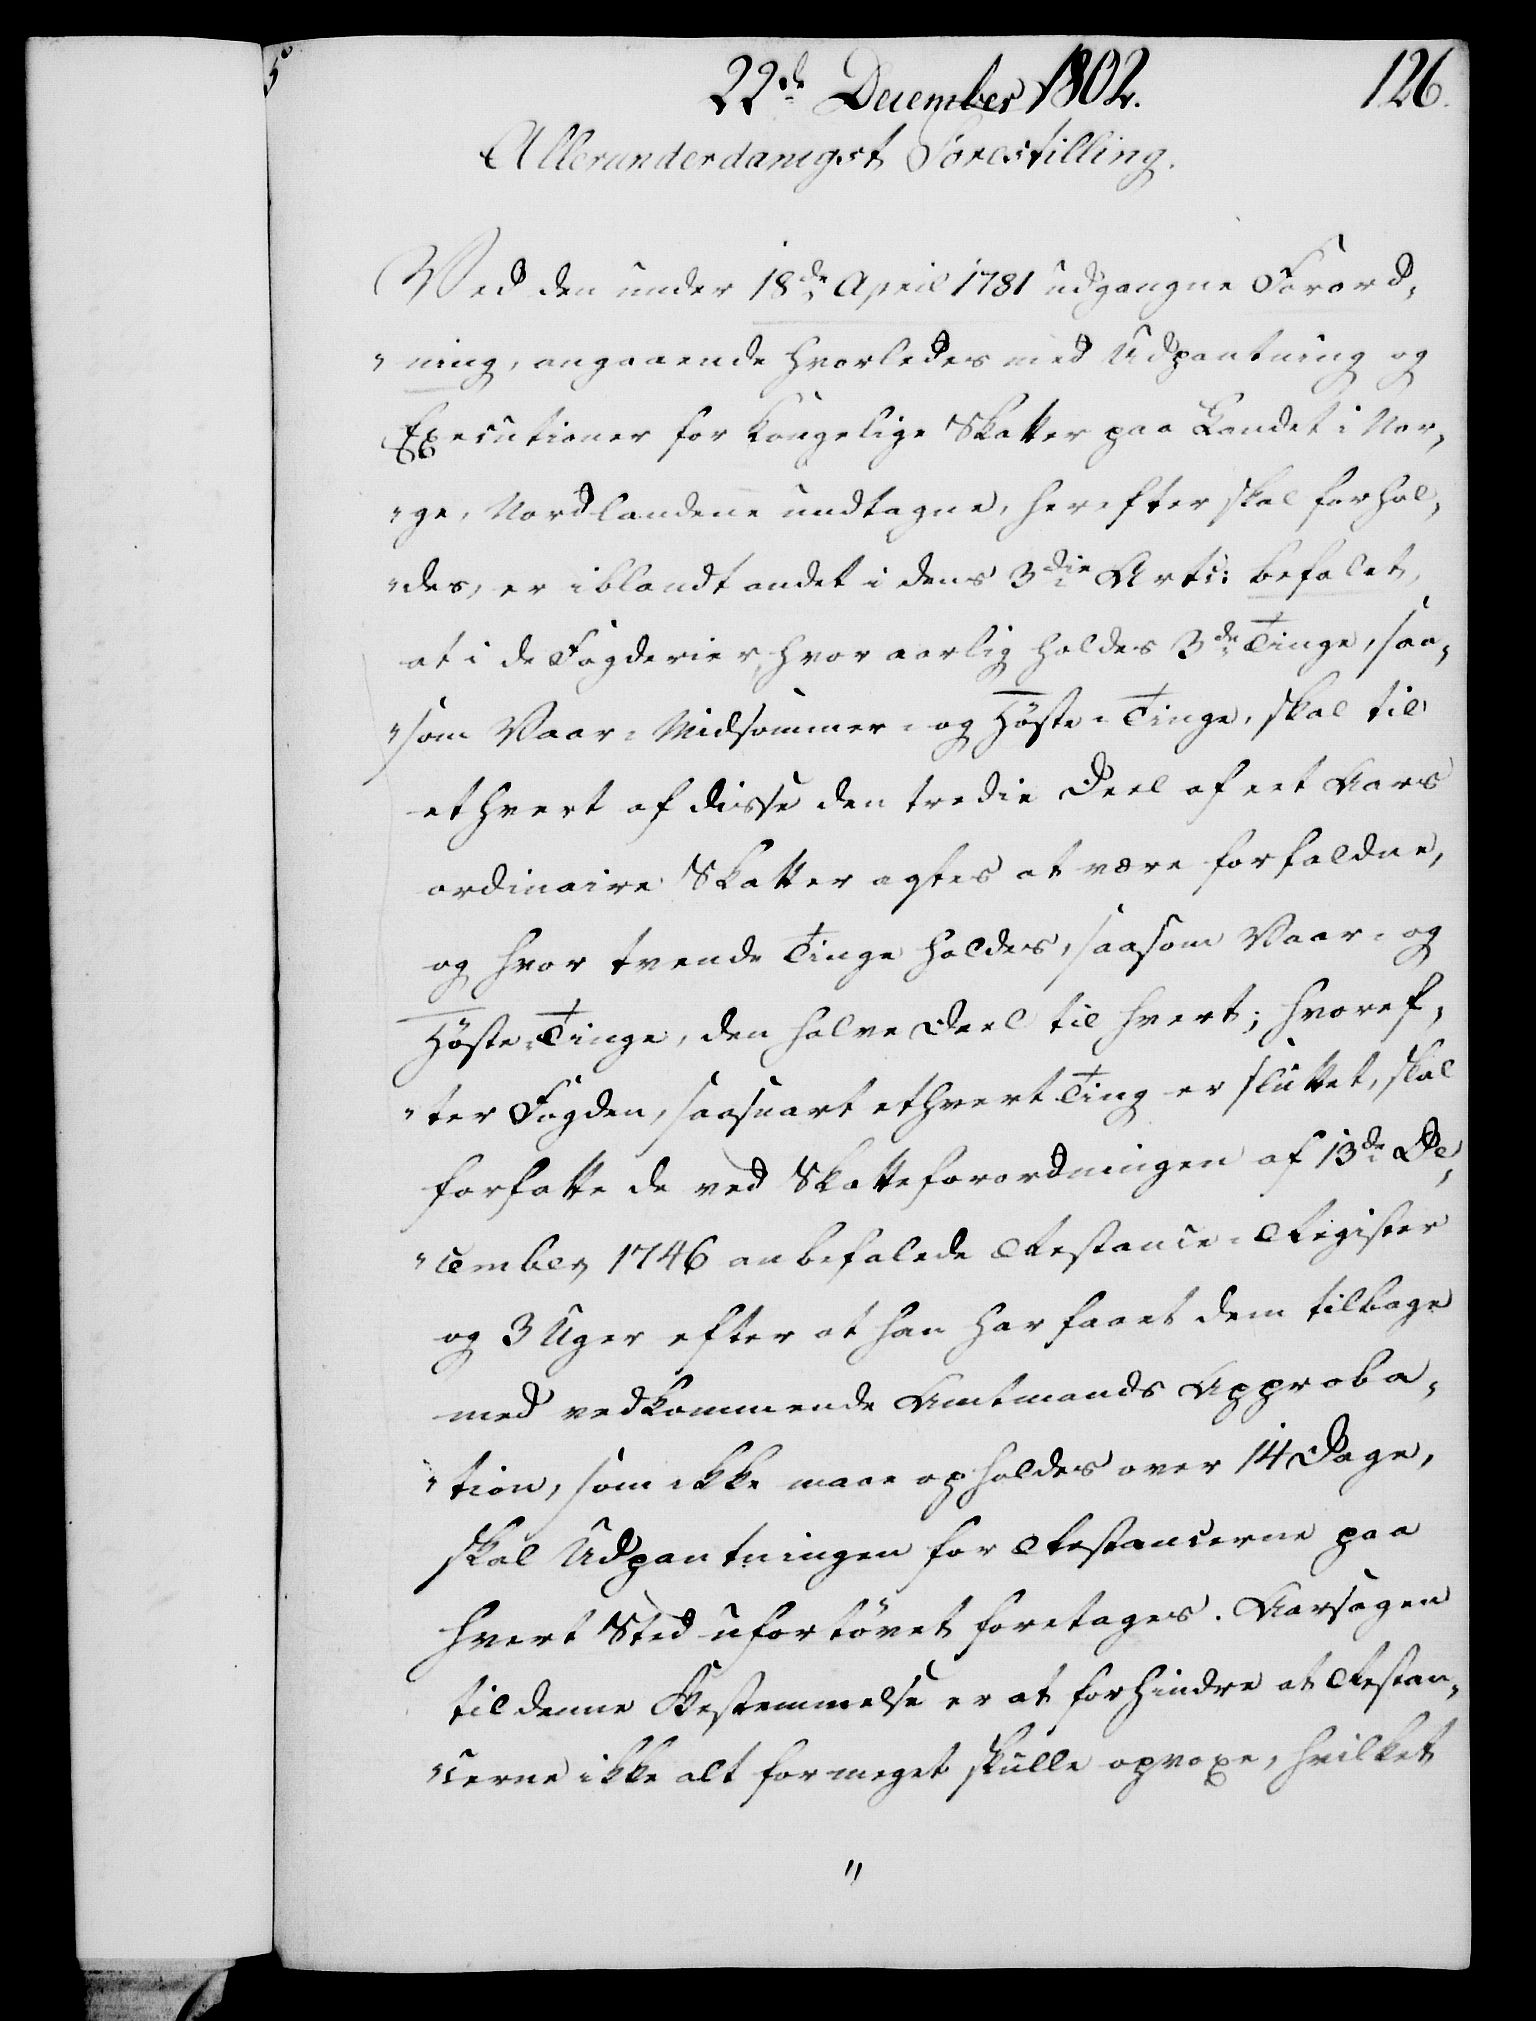 5
22de December 1802.
126.
Allerunderdanigst Forestilling.
Ved den under 18de April 1781 udgangne Forord,
"ning, angaaende hvorledes med Udpantning og
Executioner for kongelige Skatter paa Landet i Nor,
"ge, Nordlandene undtagne, herefter skal forhol,
"des, er iblandt andet i dens 3die Art: befalet,
at i de Fogderier, hvor aarlig holdes 3de Tinge, saa,
"som Vaar- Midsommer- og Høste-Tinge, skal til
ethvert af disse den tredie Deel af eet Aars
ordinaire Skatter agtes at være forfaldne,
og hvor tvende Tinge holdes, saasom Vaar- og
Høste-Tinge, den halve Deel til hvert; hvoref,
"ter Fogden, saasnart ethvert Ting er sluttet, skal
forfatte de ved Skatteforordningen af 13de De,
"cember 1746 anbefalede Restance-Register
og 3 Uger efter at han har faaet dem tilbage
med vedkommende Amtmands Approba,
"tion, som ikke maae opholdes over 14 Dage,
skal Udpantningen for Restancerne paa
hvert Sted ufortøvet foretages. Aarsagen
til denne Bestemmelse er at forhindre at Restan,
"cerne ikke alt formeget skulle opvoxe, hvilket
"